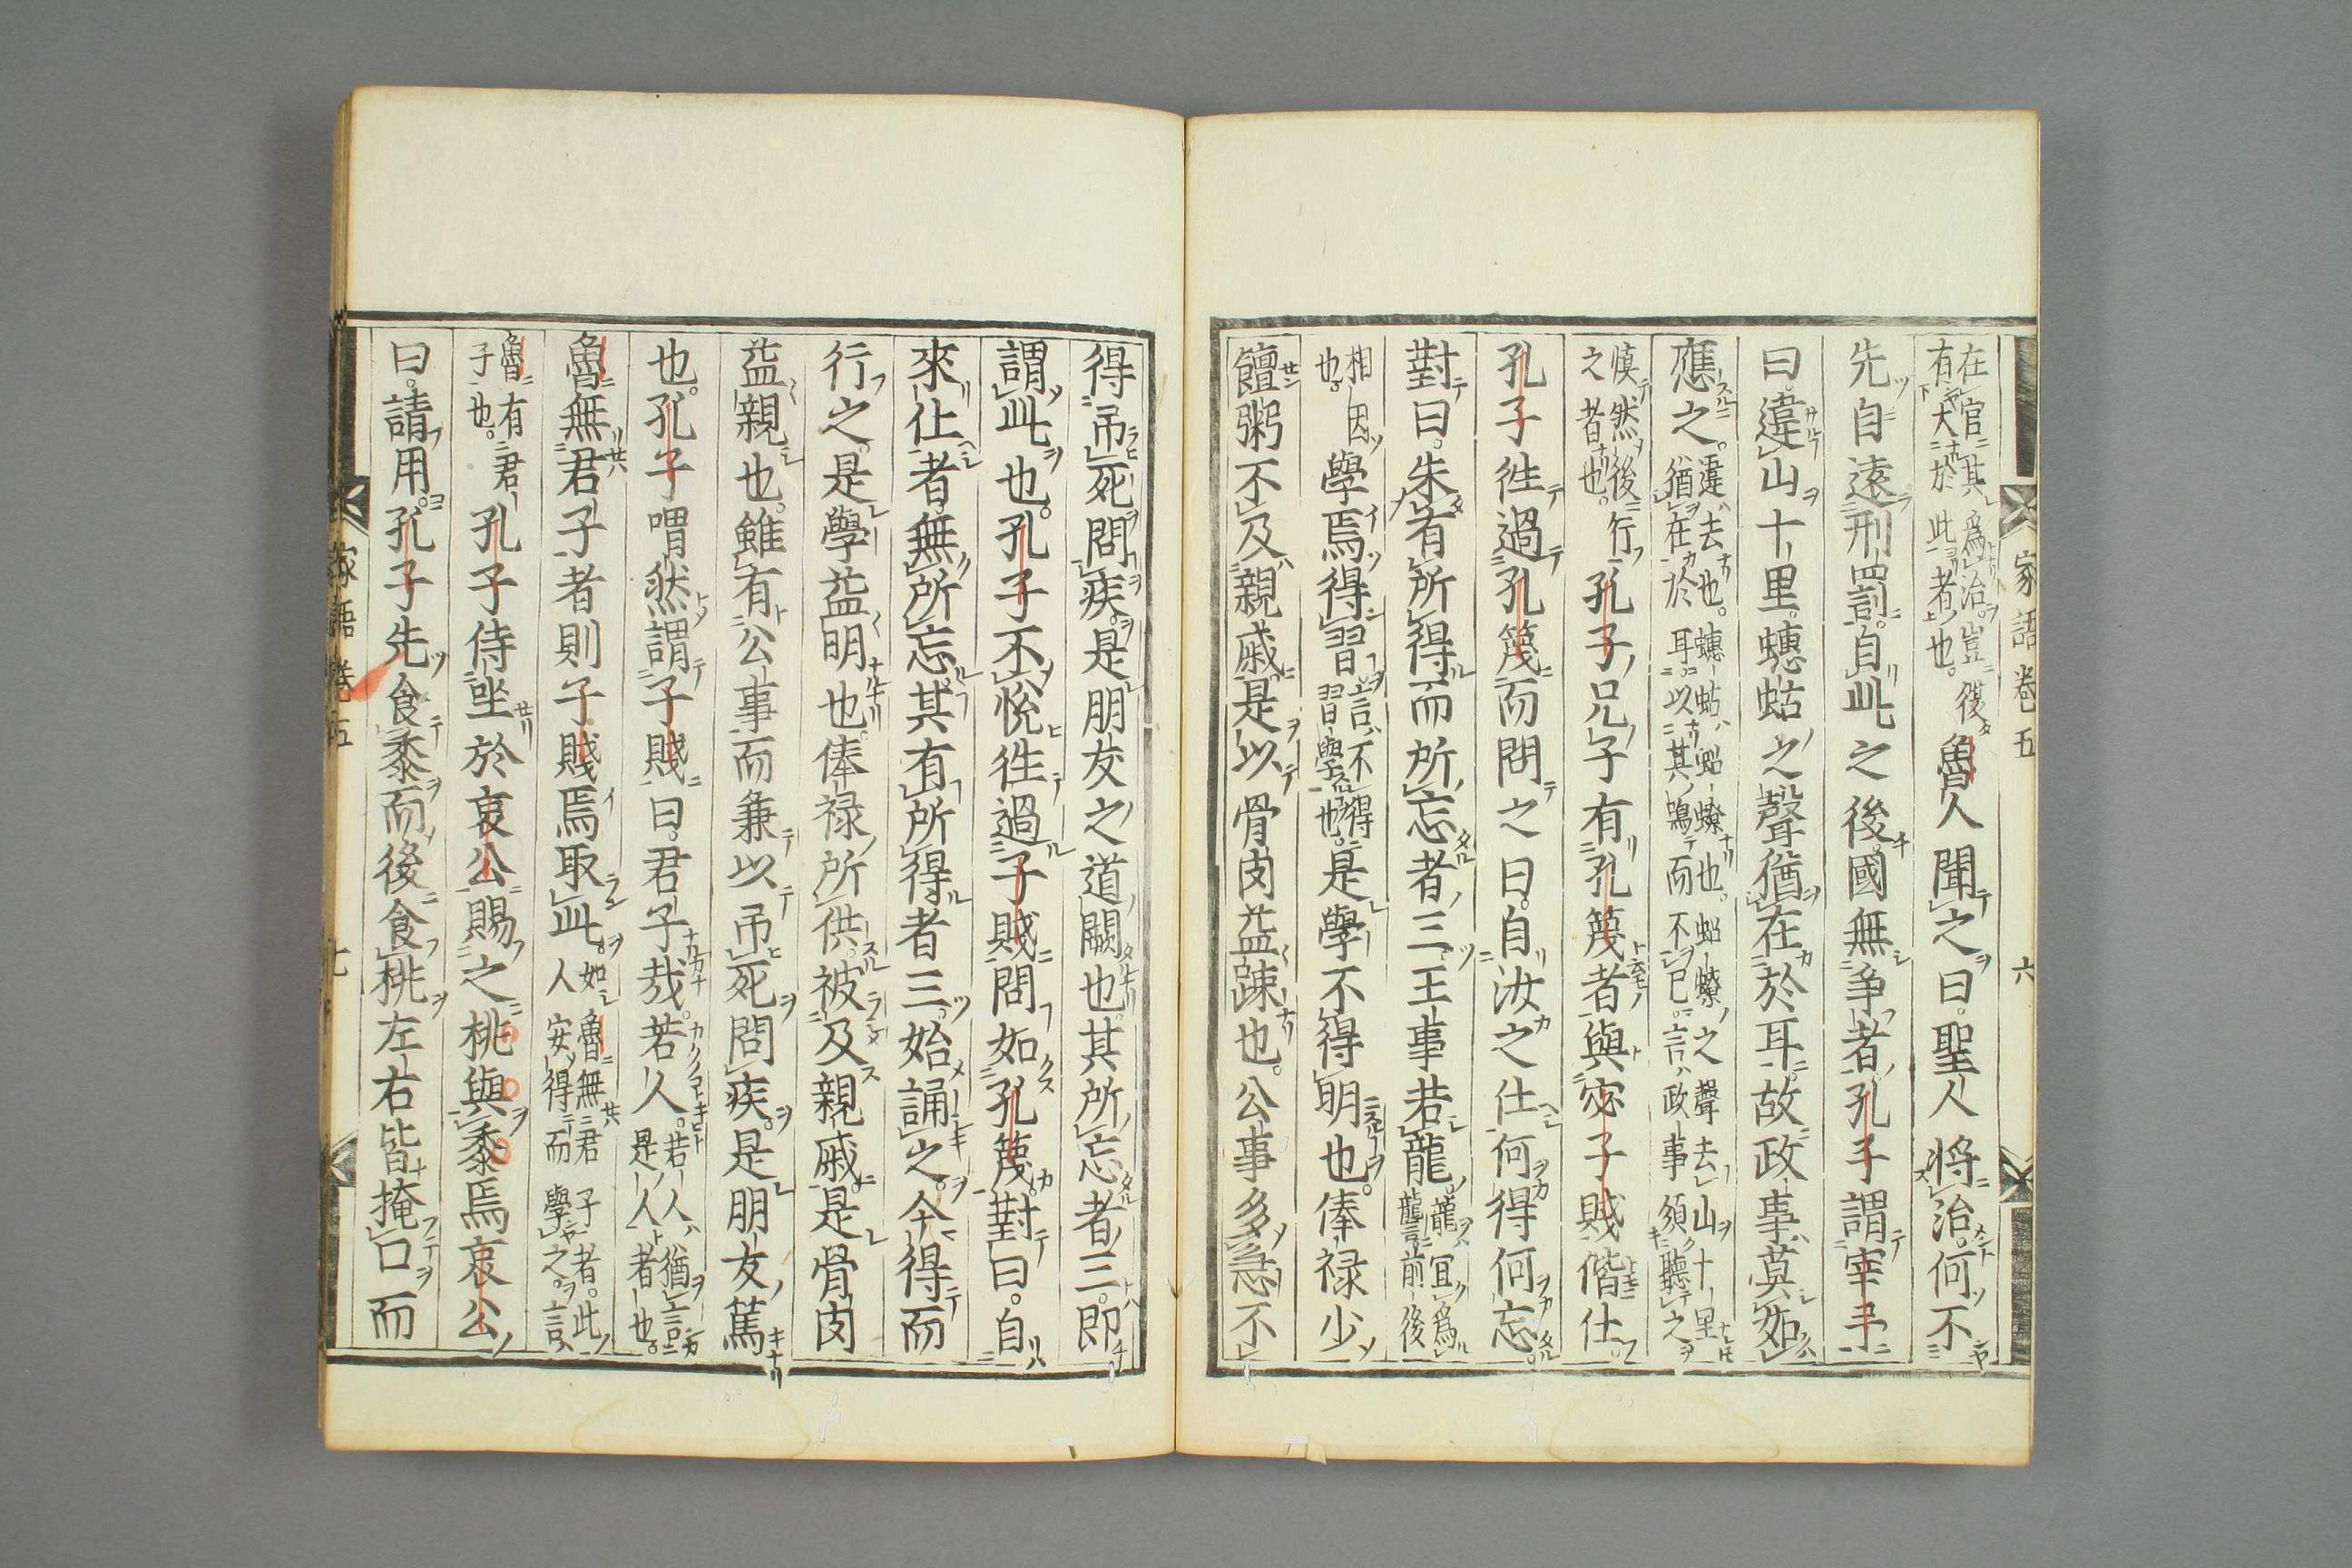 家語卷五　六
在官其爲治。豈復
有大於此者也。
魯人聞之曰。聖人将治。何不
先自遠刑罰。自此之後。國無爭者。孔子謂宰予
曰。違山十里。蟪蛄之聲。猶在於耳。故政事莫如
應之。
違去也。蟪蛄蛁蟟也。蛁蟟之聲去山十里
猶在於耳。以其鳴而不已。言政事須聽之
慎然後行
之者也。
孔子兄子有孔篾者。與宓子賤偕仕。
孔子徃過孔篾而問之曰。自汝之仕何得何忘。
對曰。未有所得而所忘者三。王事若龍。
龍宜爲
龍言前後
相因
也。
學焉得習。
言不得
習學也。
是學不得明也。俸禄少
饘粥不及親戚。是以骨肉益疎也。公事多急不
得吊死問疾。是朋友之道闕也。其所忘者三。即
謂此也。孔子不悅。徃過子賤問如孔篾。對曰。自
來仕者無所忘。其有所得者三。始誦之。今得而
行之。是學益明也。俸禄所供。被及親戚。是骨肉
益親也。雖有公事而兼以吊死問疾。是朋友篤
也。孔子喟然謂子賤曰。君子哉。若人。
若人猶言
是人者也。
魯無君子者則子賤焉取此。
如魯無君子者。此
人安得而學之。言
魯有君
子也。
孔子侍坐於哀公。賜之桃與黍焉。哀公
曰。請用。孔子先食黍而後食桃。左右皆掩口而
家語卷五　七